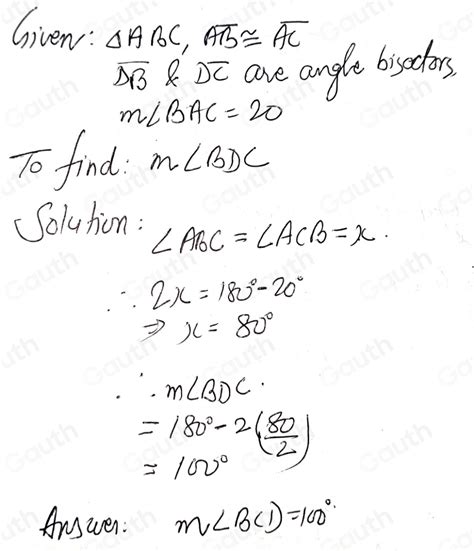 Given: △ABC, A̅B̅ ≅ A̅C̅
D̅B̅ & D̅C̅ are angle bisectors,
m∠BAC = 20
To find: m∠BDC
Solution:
∠ABC = ∠ACB = x.
∴ 2x = 180° - 20°
⇒ x = 80°
∴ m∠BDC.
= 180° - 2(80/2)
= 100°
Answer: m∠BCD = 100°.